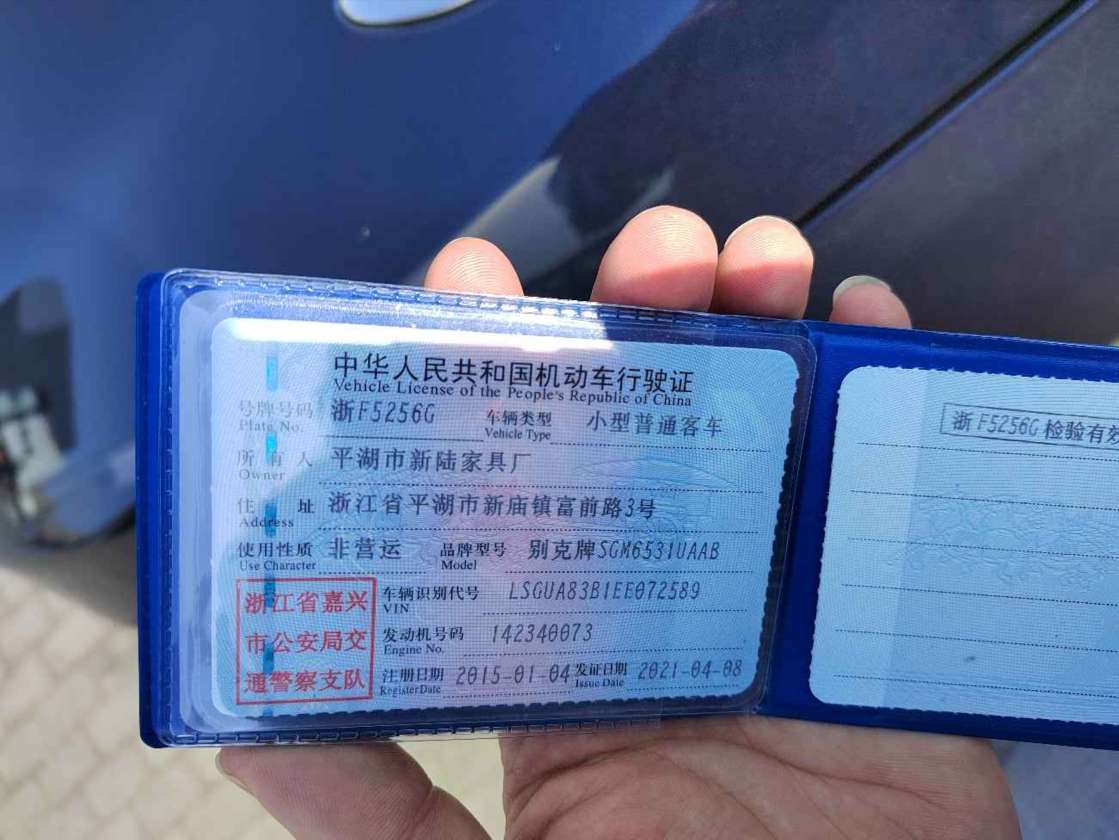 中华人民共和国机动车行驶证
Vehicle License of the People's Republic of China
号牌号码 浙F5256G 车辆类型 小型普通客车
Plate No. Vehicle Type
所有人 平湖市新陆家具厂
Owner
住址 浙江省平湖市新庙镇富前路3号
Address
使用性质 非营运 品牌型号 别克牌SGM6531UAAB
Use Character Model
浙江省嘉兴
市公安局交
通警察支队
车辆识别代号 LSGUA83B1EE072589
VIN
发动机号码 142340073
Engine No.
注册日期 2015-01-04 发证日期 2021-04-08
Register Date Issue Date
浙F5256G检验有效